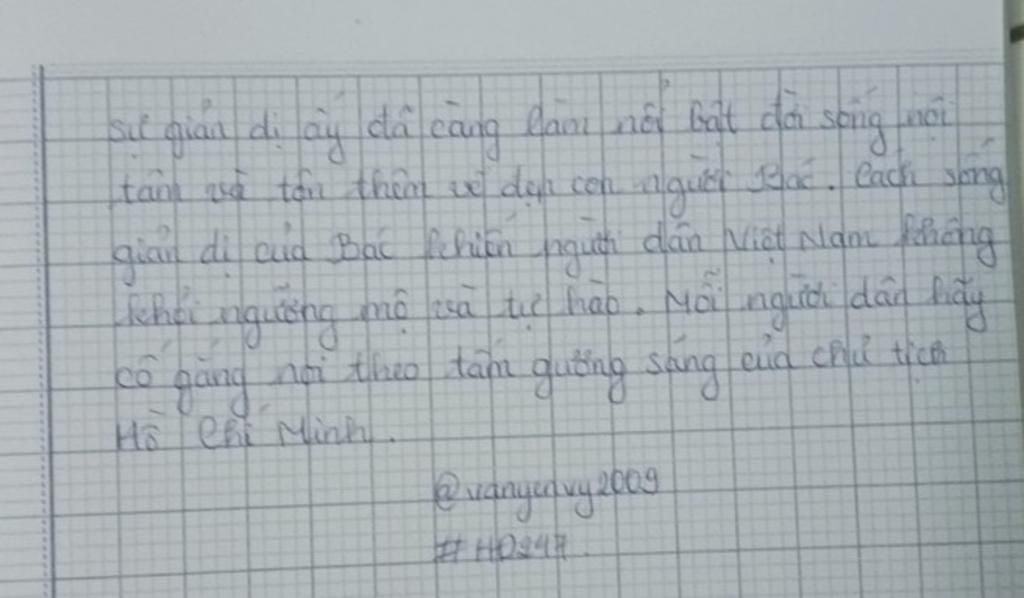 sự giản dị ấy đã càng làm nổi bật đời sống nội
tâm và tôn thêm vẻ đẹp con người Bác. Cách sống
giản dị của Bác khiến người dân Việt Nam không
khỏi ngưỡng mộ và tự hào. Mỗi người dân hãy
cố gắng nối theo tấm gương sáng của chủ tịch
Hồ Chí Minh.
@vanyenvy2009
#HD247